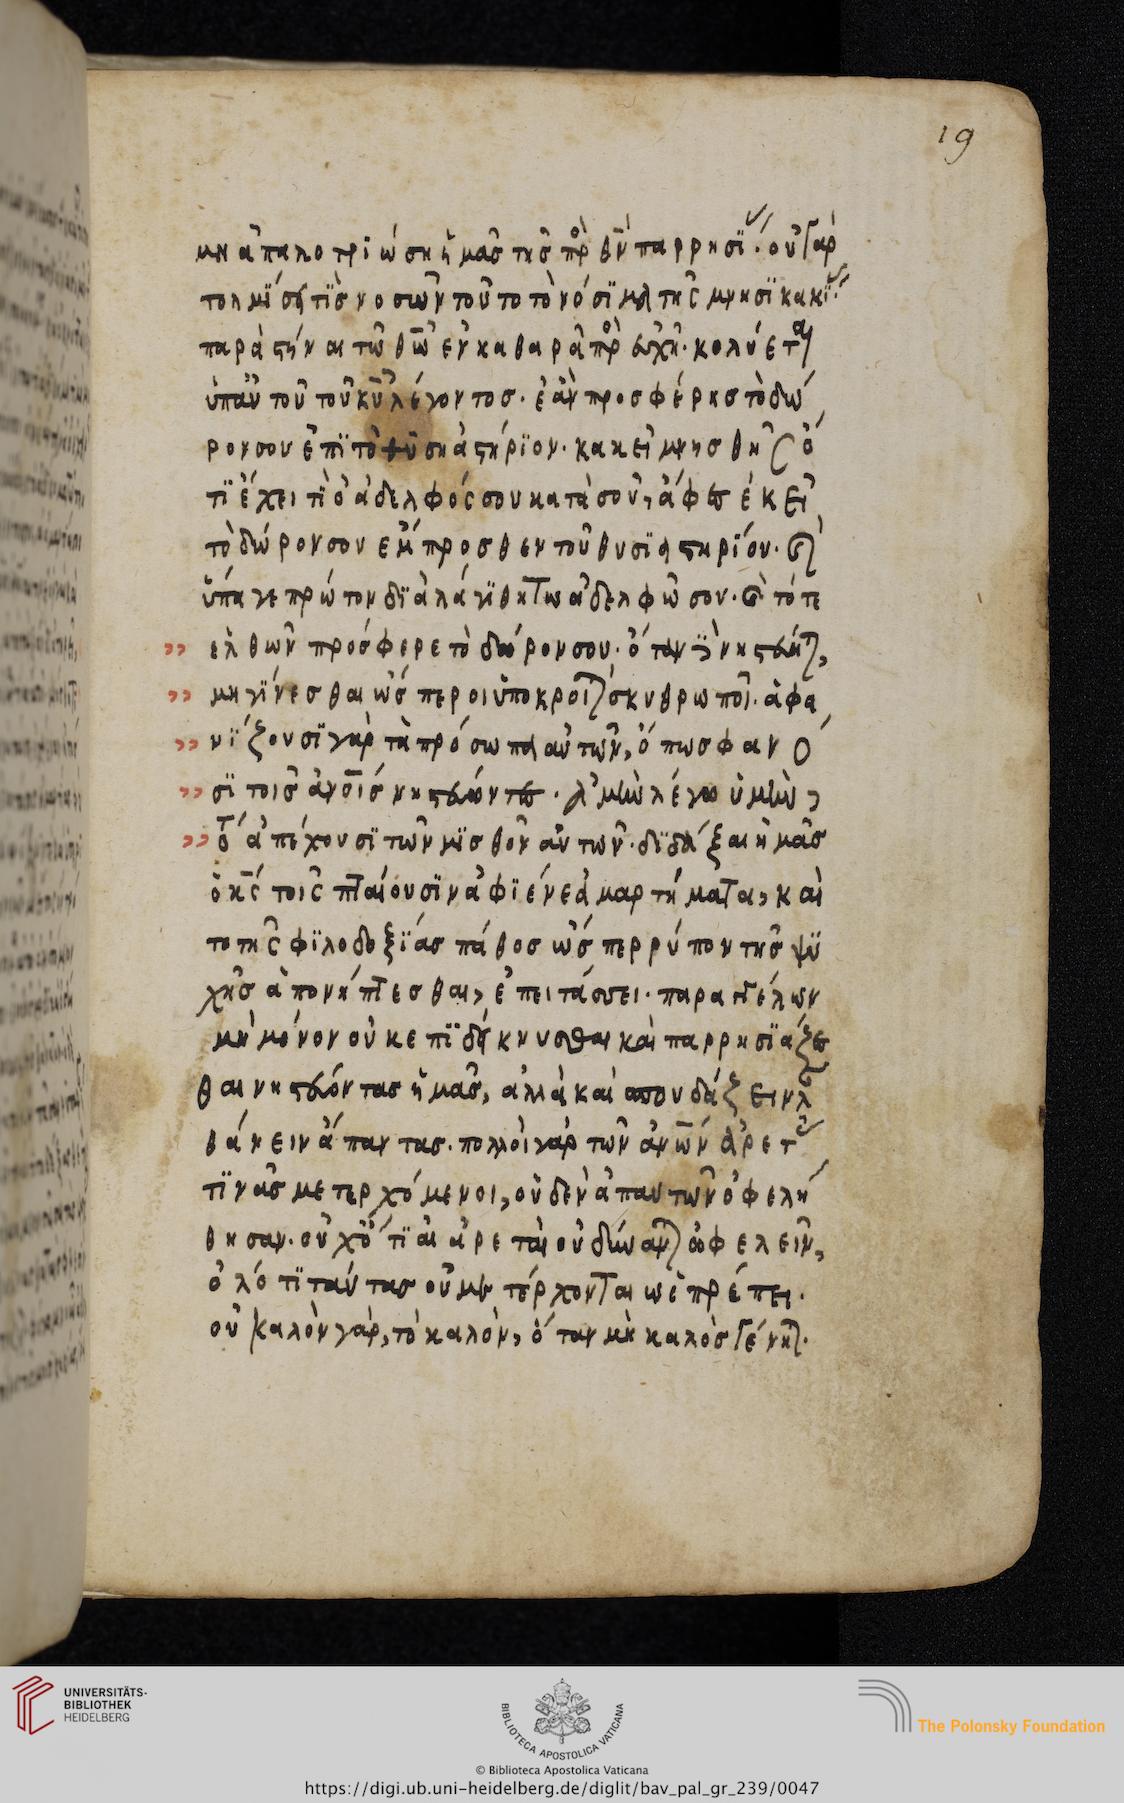 19
μη ἀπαλοτριώση ἡμᾶς της πρ θν παρρησϊ· οὐ γαρ
τολμϊσει τϊς νοσων τοῦτο τὸ νόσϊμα της μνησϊκακϊ·
παραστήν αι τῶ θῶ ἐν καθαρᾶ πρ εὐχῆ· κολύεται
ὑπ' αὐτοῦ τοῦ κυ λέγοντοσ· ἐὰν προσφέρησ τὸ δῶ
ρον σου ἐπϊ τὸ θυσηἀστήρϊον· κακεῖ μνησθῆς ὅ
τϊ ἔχει τϊ ὁ ἀδελφός σου κατὰ σοῦ, ἄφες ἐκεῖ
τὸ δώρον σου ἔμπροσθεν τοῦ θυσϊαστηρϊου· καὶ
ὕπαγε πρώτον δϊαλάγϊθη τω ἀδελφῶ σου· καὶ τότε
ἐλθων πρόσφερε τὸ δώρον σου· ὅταν ϊ νηστεύητε,
μη γϊνεσθαι ὥσπερ οι ὑποκροιταὶ σκυθρωποῖ· ἀφα
νϊζουσϊ γαρ τὰ πρόσωπα αὐτῶν, ὅπωσ φανο
σϊ τοισ ἀνοισ νηστεύοντες· ἀμὴν λέγω ὑμὴν,
ὅτϊ ἀπέχουσϊ τῶν μϊσθον αυτων· δϊδάξαι ἡμᾶς
ὁ κς τοις πταίουσϊν ἀφϊένε ἁμαρτήματα, καὶ
το της φϊλοδοξϊάς πάθος ὥσπερ ρύπον της ψϊ
χησ ἀπονήπτεσθαι, ἐπειτάσσει· παραγγέλων
μὴ μόνον οὐκ ἐπϊδείκνυσθαι καὶ παρρησϊάζεσ
θαι νηστεύοντας ἡμᾶς, ἀλλὰ καὶ σπουδάζειν λ
θάνειν ἅπαντας· πολλοὶ γὰρ τῶν ἀνων ἀρετ
τϊνὰς μετερχόμενοι, οὐδὲν ἀπ' αυτων ὀφελή
θησαν· οὐχ ὅτϊ αἱ ἀρεταὶ οὐ δύναντ ὠφελειν,
ὁλότϊ ταύτας οὐ μετέρχονται ως πρέπει·
οὐ καλὸν γὰρ, τὸ καλὸν, ὅταν μὴ καλὸς γένητ·
UNIVERSITÄTS-
BIBLIOTHEK
HEIDELBERG
BIBLIOTECA APOSTOLICA VATICANA
The Polonsky Foundation
© Biblioteca Apostolica Vaticana
https://digi.ub.uni-heidelberg.de/diglit/bav_pal_gr_239/0047